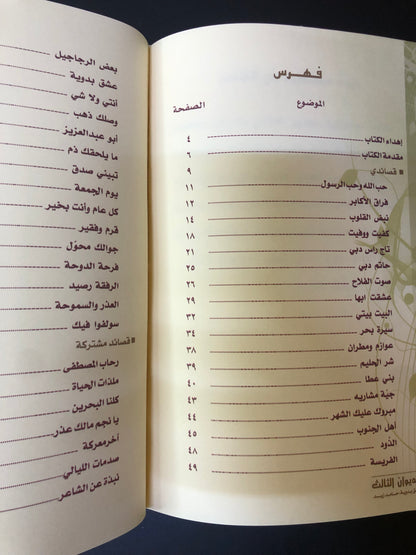 فهرس
الموضوع الصفحة
إهداء الكتاب ٤
مقدمة الكتاب ٦
قصائدي ٩
حب الله وحب الرسول ١١
فراق الأكابر ١٢
نبض القلوب ١٤
كفيت ووفيت ١٨
تاج راس دبي ٢١
حاتم دبي ٢٥
صوت الفلاح ٢٦
عشقت ابها ٢٩
البيت بيتي ٣٢
سيرة بحر ٣٤
عوازم ومطران ٣٨
شر الحليم ٣٩
بني عطا ٤٠
جيّة مشاريه ٤٣
مبروك عليك الشهر ٤٤
أهل الجنوب ٤٥
الذود ٤٨
الفريسة ٤٩
ديوان الثالث
بعض الرجاجيل
عشق بدوية
أنتي ولا شي
وصلك ذهب
أبو عبدالعزيز
ما يلحقك ذم
تبيني صدق
يوم الجمعة
كل عام وأنت بخير
قرم وفقير
جوالك محوّل
فرحة الدوحة
الرفقة رصيد
العذر والسموحة
سولفوا فيك
قصائد مشتركة
رحاب المصطفى
ملذات الحياة
كلنا البحرين
يا نجم مالك عذر
آخر معركة
صدمات الليالي
نبذة عن الشاعر